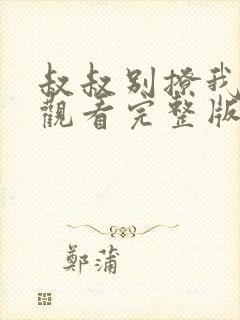 叔叔别撩我
觀看完整版
鄭蒲